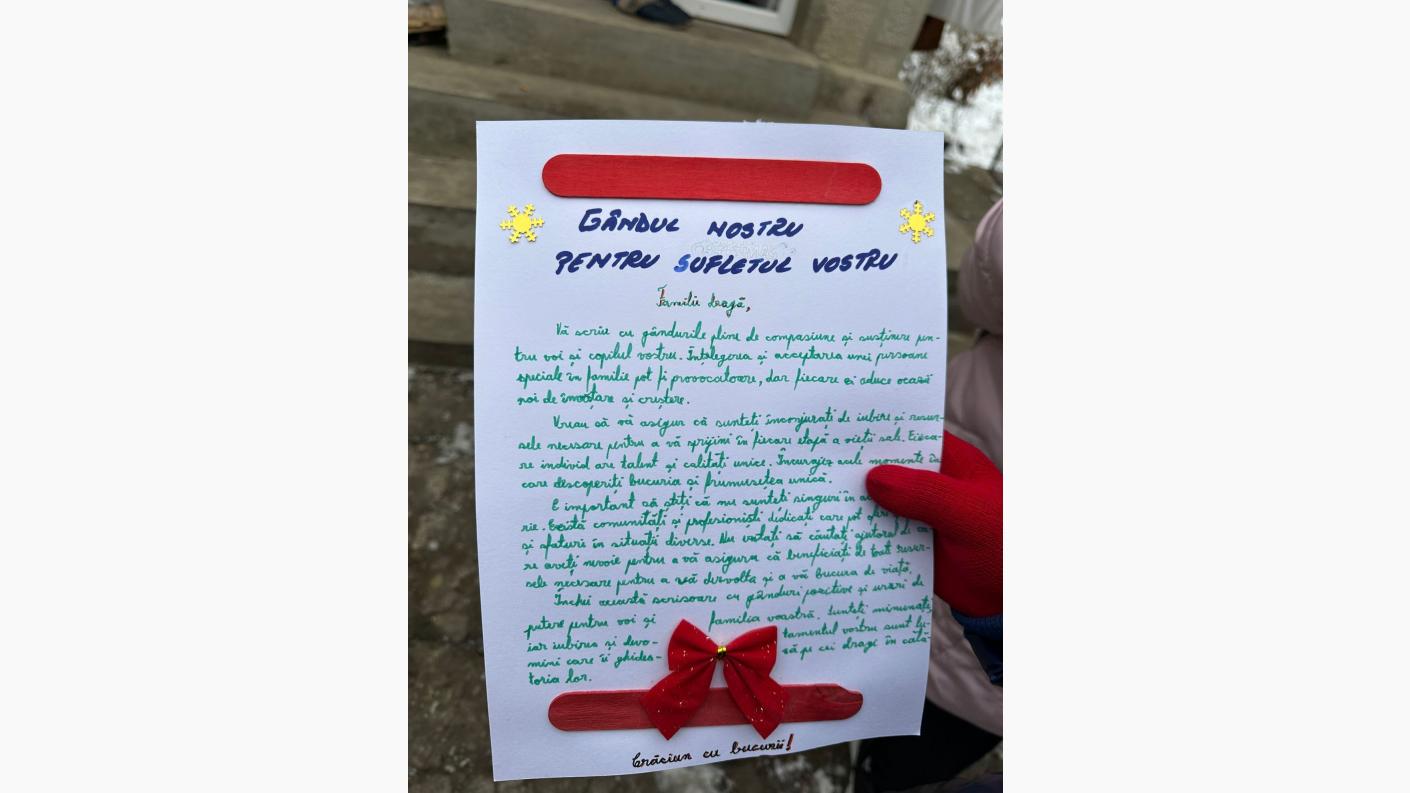 GÂNDUL NOSTRU
PENTRU SUFLETUL VOSTRU
Familie dragă,
Vă scriu cu gândurile pline de compasiune și susținere pen-
tru voi și copilul vostru. Înțelegerea și acceptarea unei persoane
speciale în familie pot fi provocatoare, dar fiecare zi aduce ocazii
noi de învățare și creștere.
Vreau să vă asigur că sunteți înconjurați de iubire și resur-
sele necesare pentru a vă sprijini în fiecare etapă a vieții sale. Fieca-
re individ are talent și calități unice. Încurajez acele momente în
care descoperiți bucuria și frumusețea unică.
E important să știți că nu sunteți singuri în
rie. Există comunități și profesioniști dedicați care pot oferi
și sfaturi în situații diverse. Nu ezitați să căutați ajutorul de ca-
re aveți nevoie pentru a vă asigura că beneficiați de toate resur-
sele necesare pentru a vă dezvolta și a vă bucura de viață.
Închei această scrisoare cu gânduri pozitive și urări de
putere pentru voi și familia voastră. Sunteți minunați,
iar iubirea și devo- tamentul vostru sunt lu-
mini care îi ghidea- ză pe cei dragi în călă-
toria lor.
Crăciun cu bucurii!